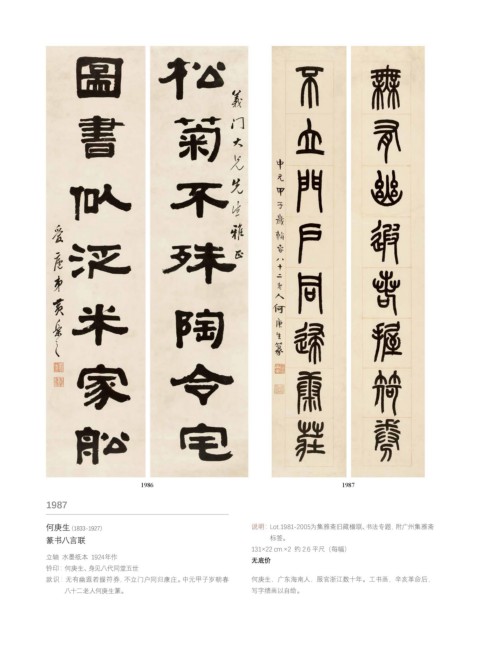 無有幽遐若握符券
不立門戶同歸康莊
中元甲子歲朝春八十二老人何庚生篆
松菊不殊陶令宅
義门大兄先生雅正
圖書似泛米家船
1986
1987
1987
何庚生 (1833-1927)
篆书八言联
立轴 水墨纸本 1924年作
钤印：何庚生、身见八代同堂五世
款识：无有幽遐若握符券，不立门户同归康庄。中元甲子岁朝春
八十二老人何庚生篆。
说明：Lot 1981-2005为集雅斋旧藏楹联、书法专题，附广州集雅斋
标签。
131×22 cm ×2 约 2.6 平尺（每幅）
无底价
何庚生，广东海南人，服官浙江数十年。工书画，辛亥革命后，
写字绩画以自给。